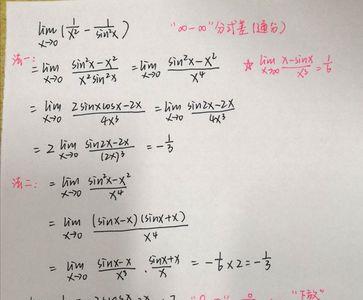 lim x→0 (1/x² - 1/sin²x) "∞-∞" 分式差(通分)
法一: = lim x→0 (sin²x-x²)/(x²sin²x) = lim x→0 (sin²x-x²)/x⁴ ☆ lim x→∞ (x-sinx)/x³ = 1/6
= lim x→0 (2sinxcosx-2x)/4x³ = lim x→0 (sin2x-2x)/4x³
= 2 lim x→0 (sin2x-2x)/(2x)³ = -1/3
法二: = lim x→0 (sin²x-x²)/x⁴
= lim x→0 (sinx-x)(sinx+x)/x⁴
= lim x→0 (sinx-x)/x³ · (sinx+x)/x = -1/6 × 2 = -1/3